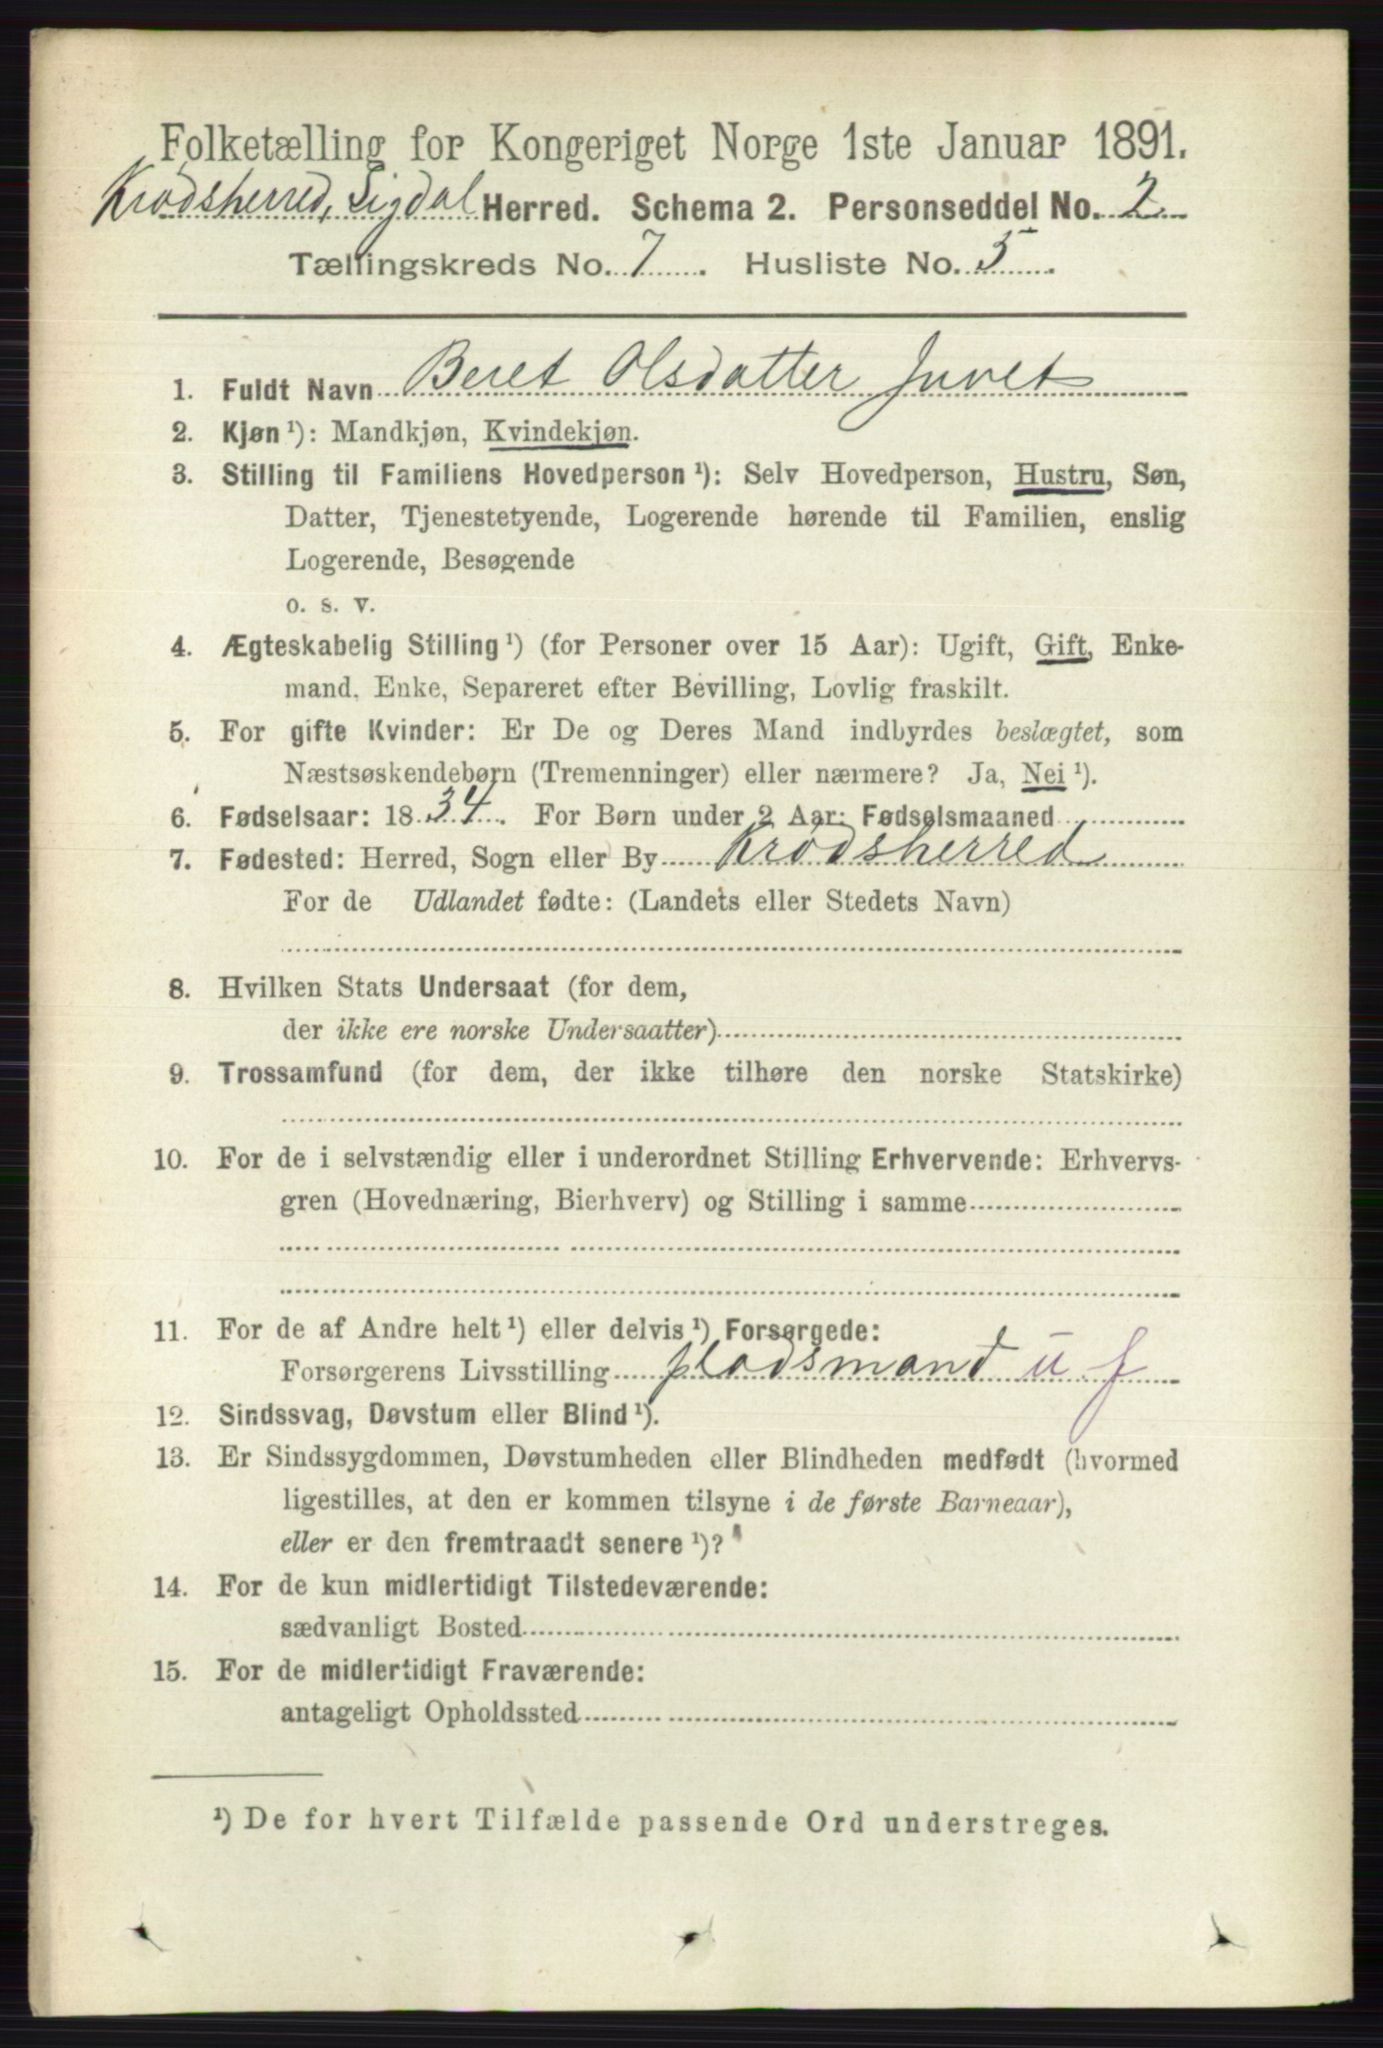 Folketælling for Kongeriget Norge 1ste Januar 1891.
Krødsherred, Sigdal Herred. Schema 2. Personseddel No. 2
Tællingskreds No. 7. Husliste No. 5.
1. Fuldt Navn Beret Olsdatter Juvet
2. Kjøn¹): Mandkjøn, Kvindekjøn.
3. Stilling til Familiens Hovedperson¹): Selv Hovedperson, Hustru, Søn,
Datter, Tjenestetyende, Logerende hørende til Familien, enslig
Logerende, Besøgende
o. s. v.
4. Ægteskabelig Stilling¹) (for Personer over 15 Aar): Ugift, Gift, Enke-
mand, Enke, Separeret efter Bevilling, Lovlig fraskilt.
5. For gifte Kvinder: Er De og Deres Mand indbyrdes beslægtet, som
Næstsøskendebørn (Tremenninger) eller nærmere? Ja, Nei¹).
6. Fødselsaar: 1834. For Børn under 2 Aar: Fødselsmaaned
7. Fødested: Herred, Sogn eller By Krødsherred
For de Udlandet fødte: (Landets eller Stedets Navn)
8. Hvilken Stats Undersaat (for dem,
der ikke ere norske Undersaatter)
9. Trossamfund (for dem, der ikke tilhøre den norske Statskirke)
10. For de i selvstændig eller i underordnet Stilling Erhvervende: Erhvervs-
gren (Hovednæring, Bierhverv) og Stilling i samme
11. For de af Andre helt¹) eller delvis¹) Forsørgede:
Forsørgerens Livsstilling pladsmand u f
12. Sindssvag, Døvstum eller Blind¹).
13. Er Sindssygdommen, Døvstumheden eller Blindheden medfødt (hvormed
ligestilles, at den er kommen tilsyne i de første Barneaar),
eller er den fremtraadt senere¹)?
14. For de kun midlertidigt Tilstedeværende:
sædvanligt Bosted
15. For de midlertidigt Fraværende:
antageligt Opholdssted
¹) De for hvert Tilfælde passende Ord understreges.